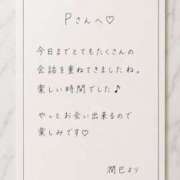 Pさんへ♡
今日までとてもたくさんの
会話を重ねてきましたね。
楽しい時間でした♪
やっとお会い出来るので
楽しみです♡
潤巳より